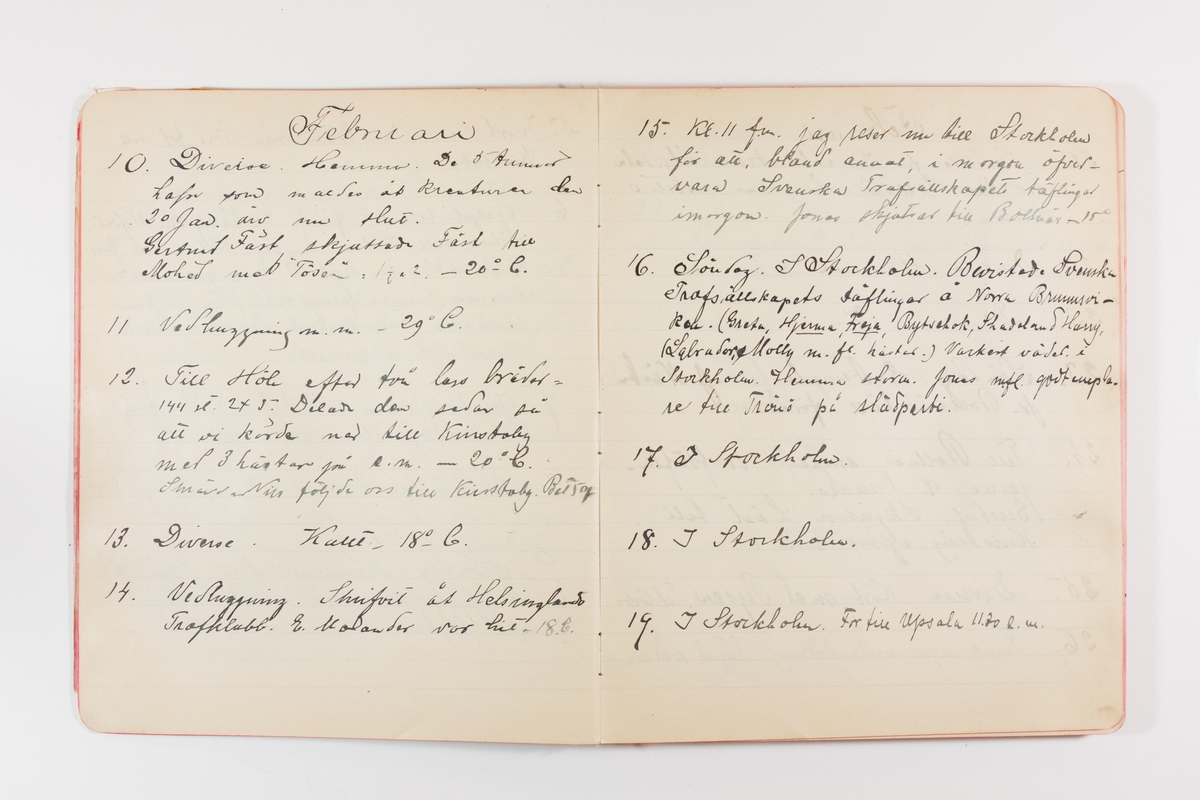 Februari
10. Diverse. Hemma. De 5 tunnor
hafre som maldes åt kreaturen den
20 Jan. äro nu slut.
Gertrud Fäst skjutsade Fäst till
Mohed med "Tösen". – 20° C.
11 Vedhuggning m.m. – 29° C.
12. Till Höle efter två lass bräder –
144 st. 2x5. Delade den sedan så
att vi körde ned till Kinstaby
med 3 hästar på e.m. – 20° C.
Nils följde oss till Kinstaby.
13. Diverse. Kallt – 18° C.
14. Vedhuggning. Skrifvit åt Helsinglands
Trafklubb. E. Molander var hit – 18° C.
15. Kl. 11 fm. jag reser nu till Stockholm
för att, bland annat, i morgon öfver-
vara Svenska Trafsällskapets täflingar
imorgon. Jonas skjutsar till Bollnäs – 15°
16. Söndag. I Stockholm. Bevistade Svenska
Trafsällskapets täflingar å Norra Brunnsvi-
ken. (Greta, Hjerma, Freja, Bytschok, Shadeland Harry,
(Labrador, Molly m. fl. hästar.) Vackert väder i
Stockholm. Hemma storm. Jonas mfl. godtempla-
re till Trönö på slädparti.
17. I Stockholm.
18. I Stockholm.
19. I Stockholm. For till Upsala 11.20 e.m.